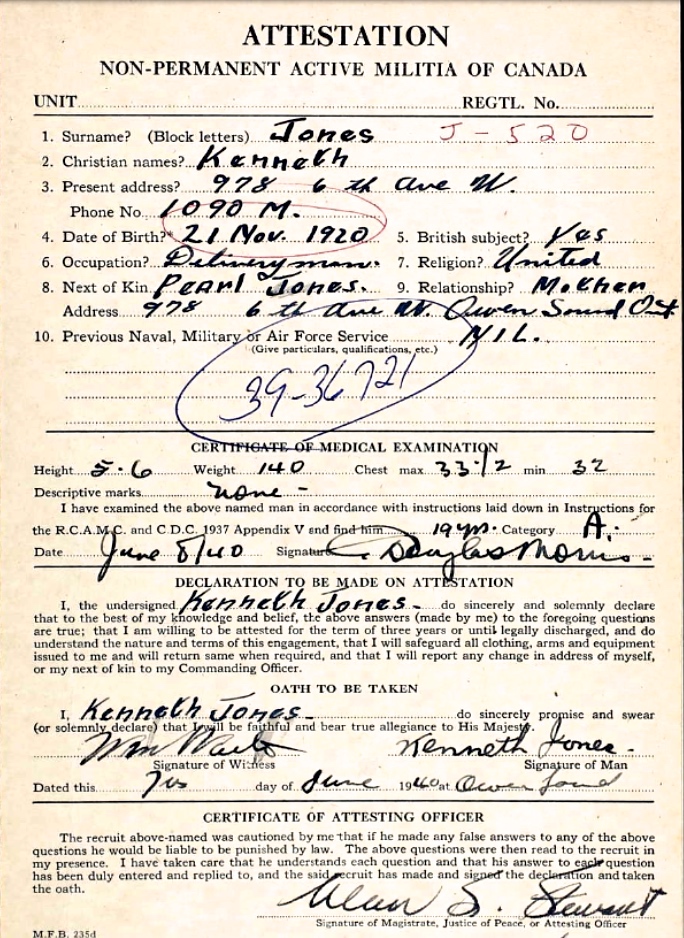 ATTESTATION
NON-PERMANENT ACTIVE MILITIA OF CANADA
UNIT REGTL. No.
1. Surname? (Block letters) Jones J-520
2. Christian names? Kenneth
3. Present address? 978 6th Ave W.
Phone No. 1090 M.
4. Date of Birth?* 21 Nov. 1920 5. British subject? Yes
6. Occupation? Deliveryman. 7. Religion? United
8. Next of Kin Pearl Jones. 9. Relationship? Mother
Address 978 6th Ave W. Owen Sound Ont.
10. Previous Naval, Military or Air Force Service NIL.
(Give particulars, qualifications, etc.)
39-36721
CERTIFICATE OF MEDICAL EXAMINATION
Height 5-6 Weight 140 Chest max 33 1/2 min 32
Descriptive marks none -
I have examined the above named man in accordance with instructions laid down in Instructions for
the R.C.A.M.C. and C.D.C. 1937 Appendix V and find him 19 yrs. Category A.
Date June 8/40 Signature Douglas Morris
DECLARATION TO BE MADE ON ATTESTATION
I, the undersigned Kenneth Jones do sincerely and solemnly declare
that to the best of my knowledge and belief, the above answers (made by me) to the foregoing questions
are true; that I am willing to be attested for the term of three years or until legally discharged, and do
understand the nature and terms of this engagement, that I will safeguard all clothing, arms and equipment
issued to me and will return same when required, and that I will report any change in address of myself,
or my next of kin to my Commanding Officer.
OATH TO BE TAKEN
I, Kenneth Jones do sincerely promise and swear
(or solemnly declare) that I will be faithful and bear true allegiance to His Majesty.
Wm Kenneth Jones
Signature of Witness Signature of Man
Dated this day of June 1940 at Owen Sound
CERTIFICATE OF ATTESTING OFFICER
The recruit above-named was cautioned by me that if he made any false answers to any of the above
questions he would be liable to be punished by law. The above questions were then read to the recruit in
my presence. I have taken care that he understands each question and that his answer to each question
has been duly entered and replied to, and the said recruit has made and signed the declaration and taken
the oath.
S. Stewart
Signature of Magistrate, Justice of Peace, or Attesting Officer
M.F.B. 235d